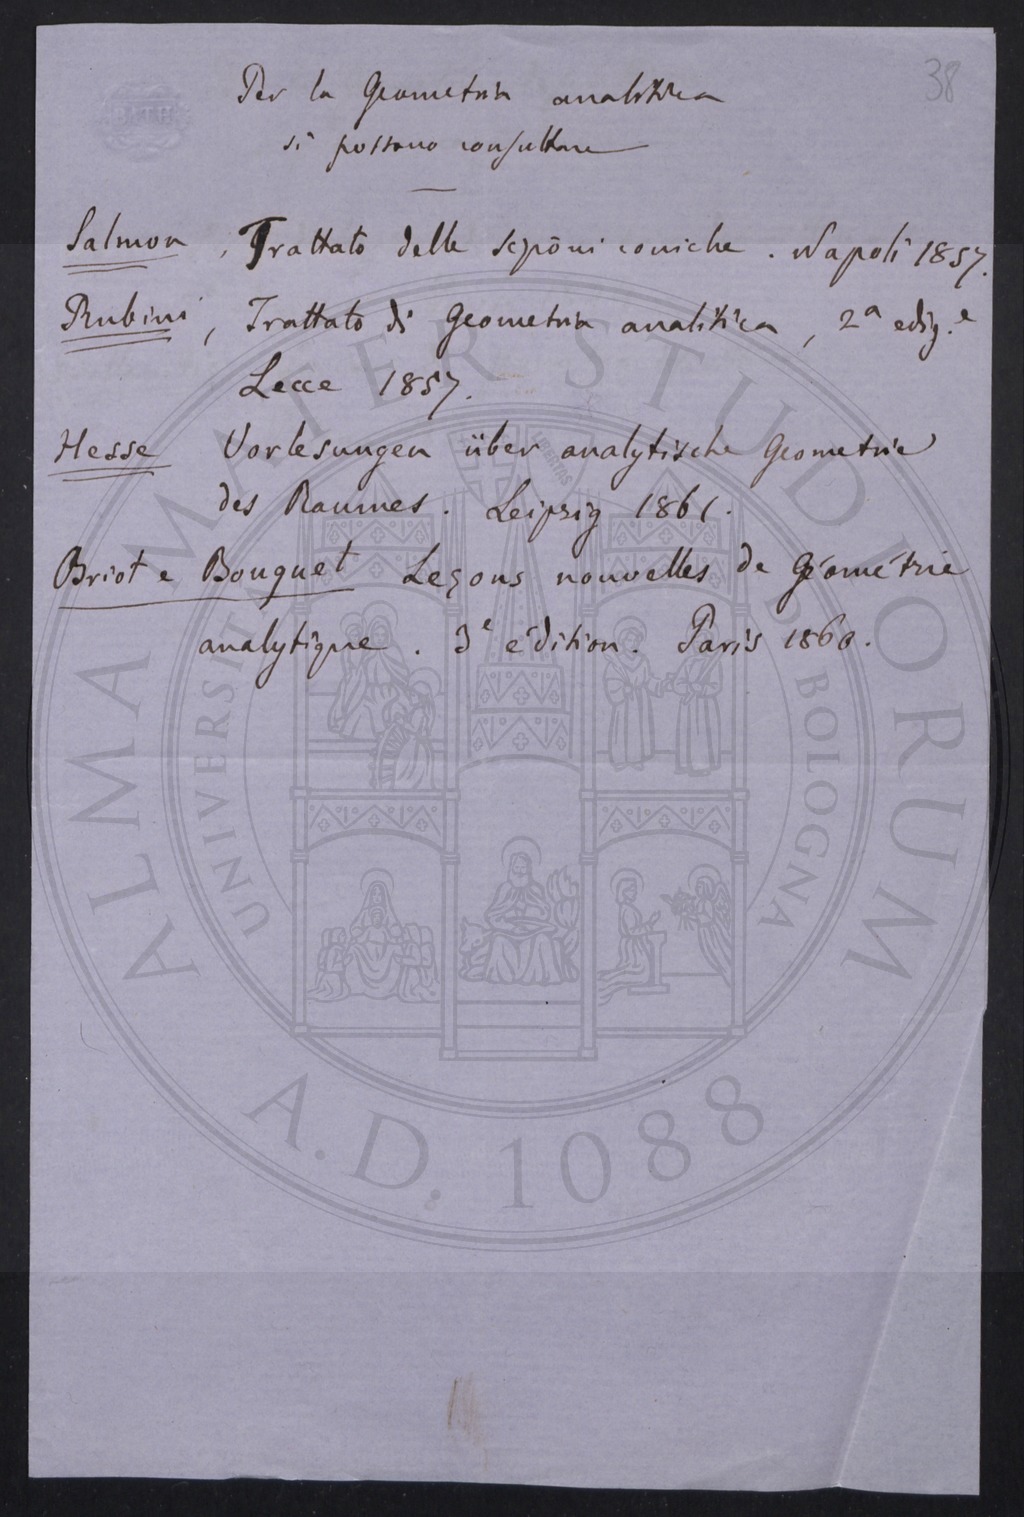 38
BATH
Per la Geometria analitica
si possono consultare
Salmon, Trattato delle sezõni coniche. Napoli 1857.
Rubini, Trattato di Geometria analitica, 2ªediz.e
Lecce 1857.
Hesse Vorlesungen über analytische Geometrie
des Raumes. Leipzig 1861.
Briot e Bouquet Leçons nouvelles de Géométrie
analytique. 3e édition. Paris 1860.
ALMA MATER STUDIORUM
UNIVERSITÀ DI BOLOGNA
LIBERTAS
A.D. 1088